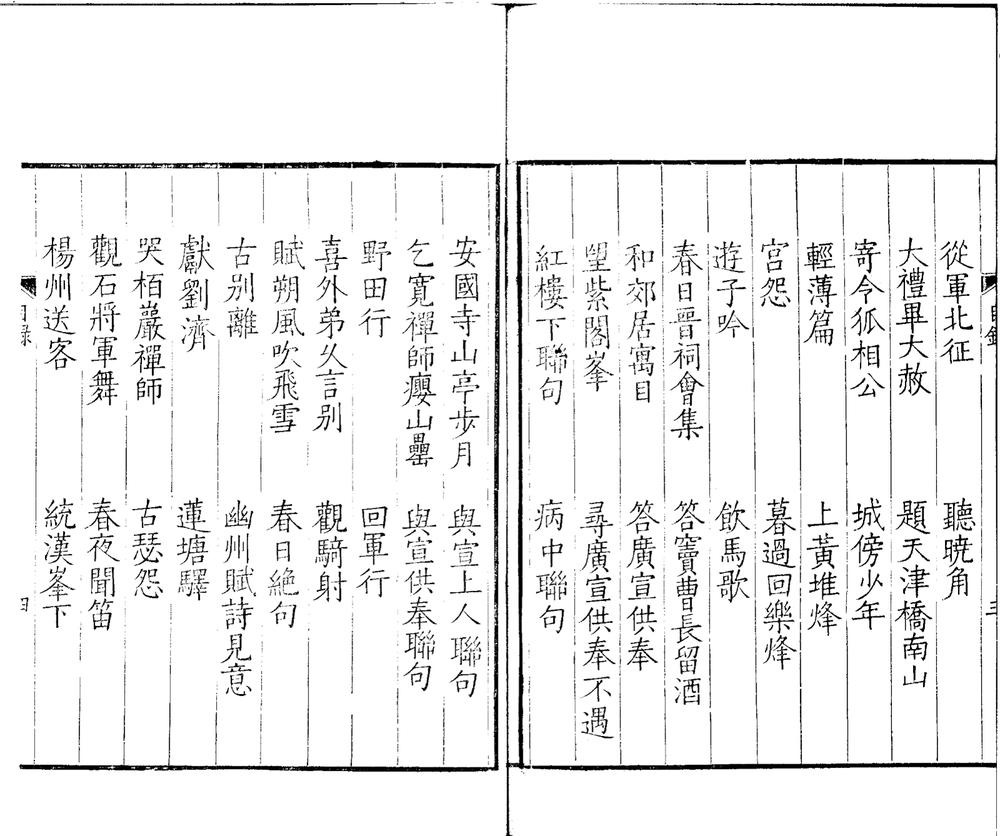 從軍北征　聽暁角
大禮畢大赦　題天津橋南山
寄令狐相公　城傍少年
輕薄篇　上黃堆烽
宮怨　暮過回樂烽
遊子吟　飲馬歌
春日晋祠會集　答竇曹長留酒
和郊居寓目　答廣宣供奉
望紫閣峯　尋廣宣供奉不遇
紅樓下聯句　病中聯句
安國寺山亭步月　與宣上人聯句
乞寛禪師癭山罍　與宣供奉聯句
野田行　回軍行
喜外弟乆言别　觀騎射
賦朔風吹飛雪　春日絶句
古别離　幽州賦詩見意
獻劉濟　蓮塘驛
哭栢巖禪師　古瑟怨
觀石將軍舞　春夜聞笛
楊州送客　統漢峯下
目録　四